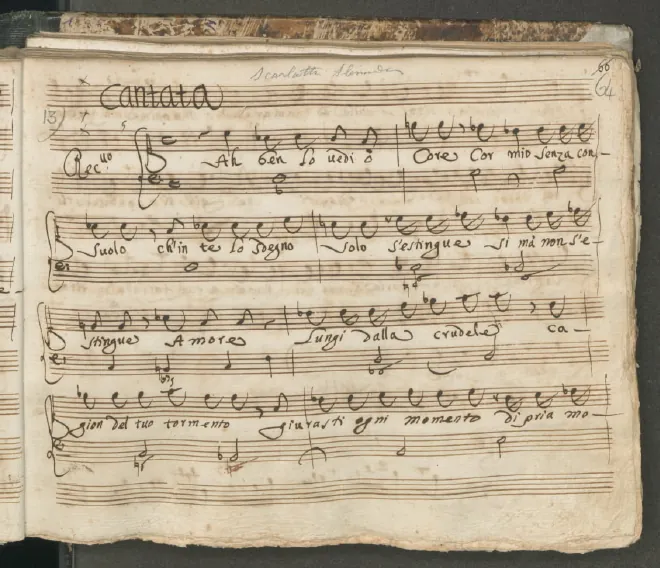 Scarlatti Alessandro
66
64
Cantata
13)
Rec.uo
Ah ben lo vedi ò Core Cor mio senza con-
suolo ch'in te lo sdegno solo s'estingue si mà non s'e-
stingue Amore Lungi dalla crudele ca-
gion del tuo tormento giurasti ogni momento di pria mo-